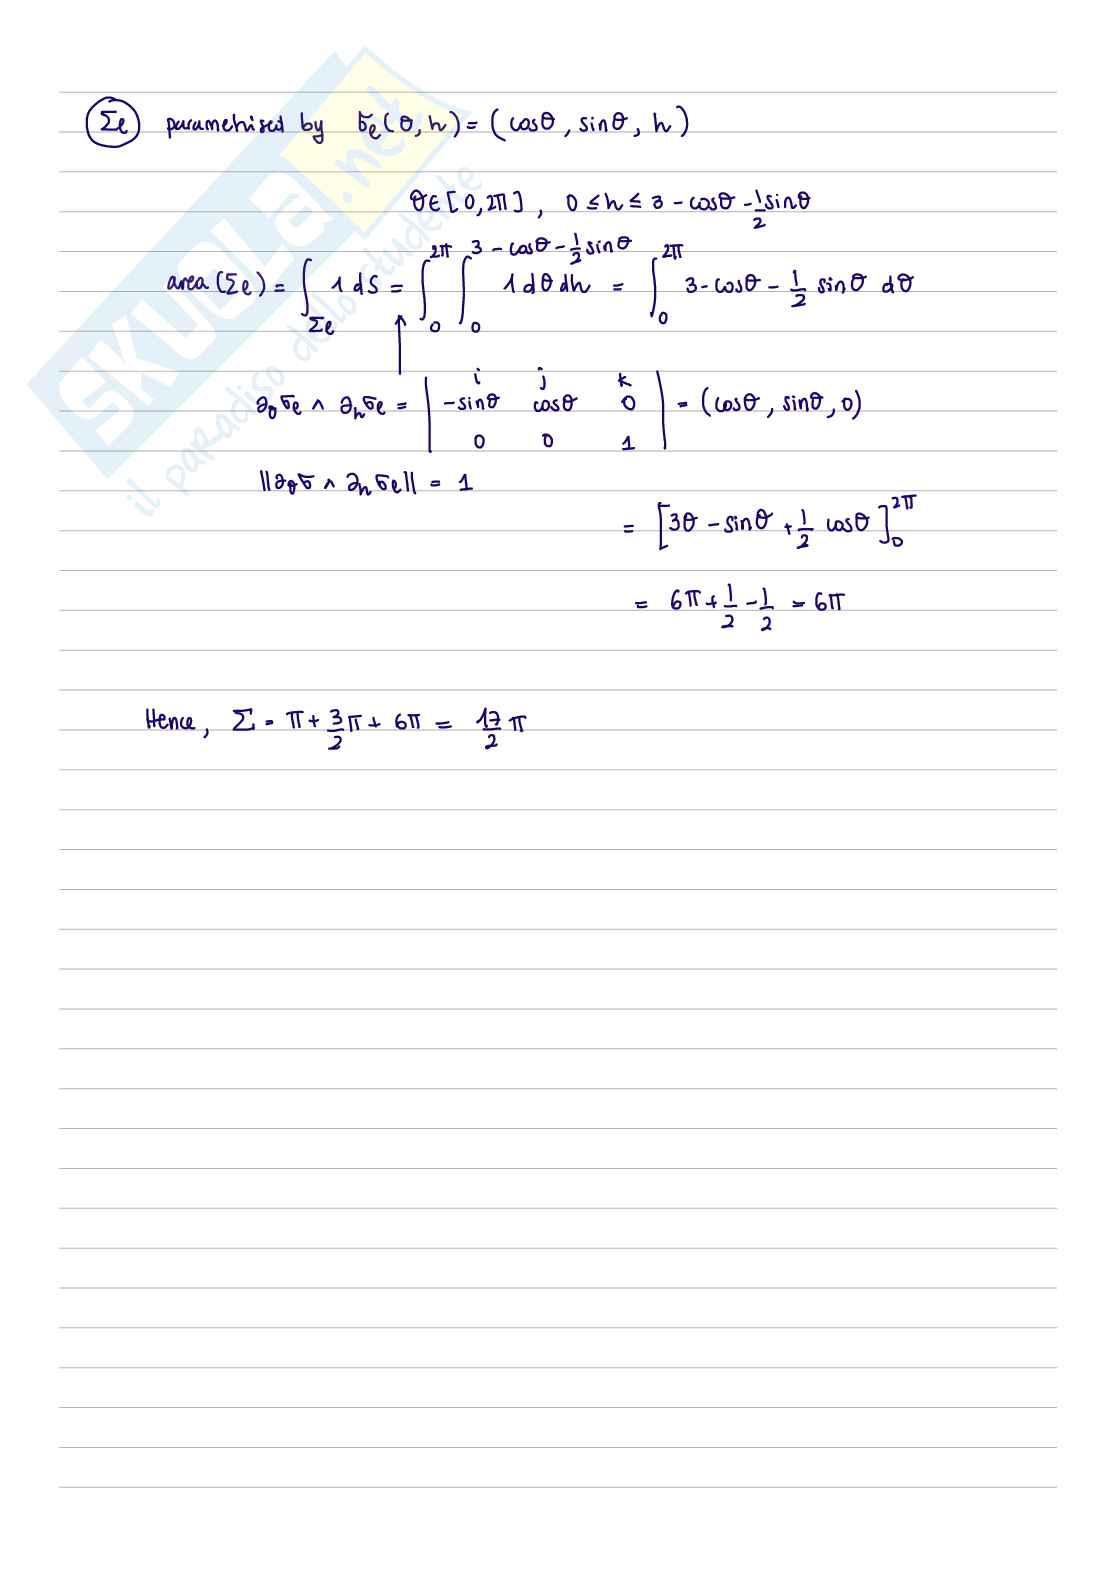 Σℓ parametrised by σℓ(θ, h) = (cosθ, sinθ, h)
θ∈[0, 2π], 0 ≤ h ≤ 3 - cosθ - 1/2 sinθ
area(Σℓ) = ∫_Σℓ 1 dS = ∫_0^2π ∫_0^{3 - cosθ - 1/2 sinθ} 1 dθ dh = ∫_0^2π 3 - cosθ - 1/2 sinθ dθ
↑
∂θσℓ ∧ ∂hσℓ = | i j k
-sinθ cosθ 0
0 0 1 | = (cosθ, sinθ, 0)
||∂θσ ∧ ∂hσℓ|| = 1
= [3θ - sinθ + 1/2 cosθ]_0^2π
= 6π + 1/2 - 1/2 = 6π
Hence, Σ = π + 3/2 π + 6π = 17/2 π
SKUOLA.net
il paradiso dello studente